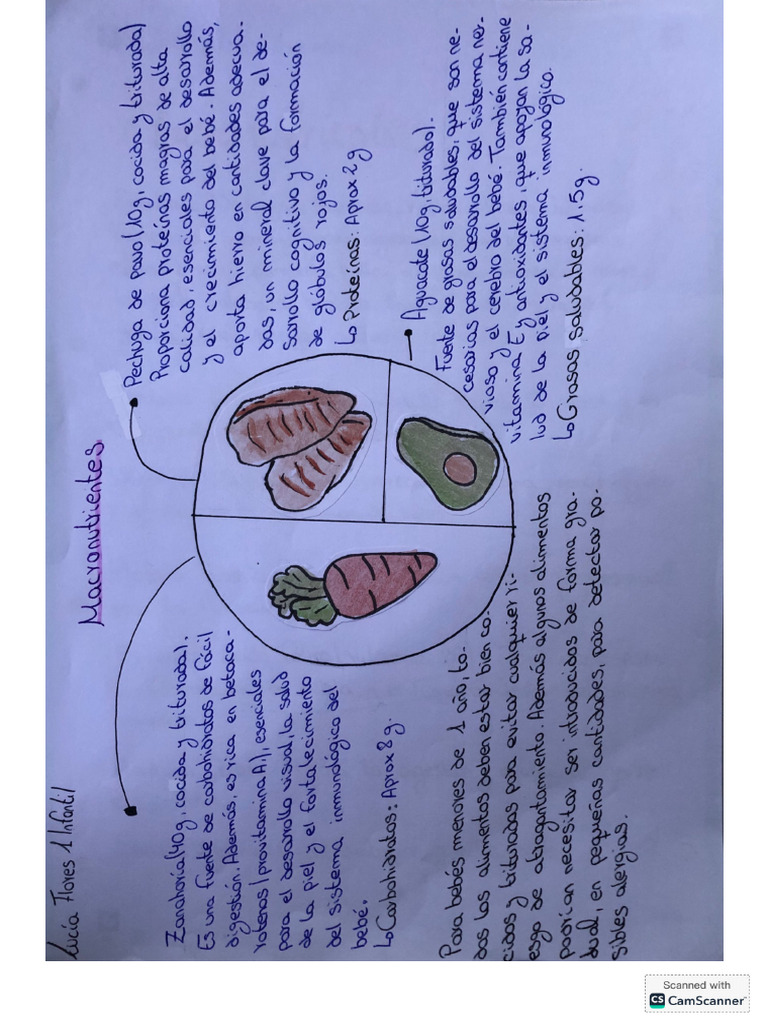 Lucía Flores 1 Infantil
Macronutrientes
Zanahoria (40g, cocida y triturada).
Es una fuente de carbohidratos de fácil
digestión. Además, es rica en betaca-
rotenos (provitamina A), esenciales
para el desarrollo visual, la salud
de la piel y el fortalecimiento
del sistema inmunológico del
bebé.
↳ Carbohidratos: Aprox 8g.
Pechuga de pavo (10g, cocida y triturada)
Proporciona proteínas magras de alta
calidad, esenciales para el desarrollo
y el crecimiento del bebé. Además,
aporta hierro en cantidades adecua-
das, un mineral clave para el de-
sarrollo cognitivo y la formación
de glóbulos rojos.
↳ Proteínas: Aprox 2g
Aguacate (10g, triturado).
Fuente de grasas saludables, que son ne-
cesarias para el desarrollo del sistema ner-
vioso y el cerebro del bebé. También contiene
vitamina E y antioxidantes, que apoyan la sa-
lud de la piel y el sistema inmunológico.
↳ Grasas saludables: 1.5g.
Para bebés menores de 1 año, to-
dos los alimentos deben estar bien co-
cidos y triturados para evitar cualquier ri-
esgo de atragantamiento. Además algunos alimentos
podrían necesitar ser introducidos de forma gra-
dual, en pequeñas cantidades, para detectar po-
sibles alergias.
Scanned with
CS CamScanner